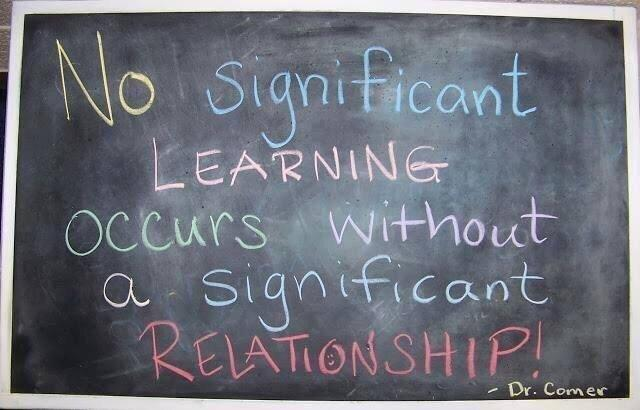 No significant
LEARNING
OCCURS without
a significant
RELATIONSHIP!
- Dr. Comer